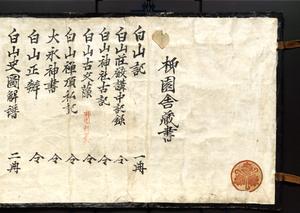 柳園舎蔵書
白山記 一冊
白山荘厳講中記録 仝
白山神社古記 仝
白山古文蔵 仝
白山禅頂私記 仝
大永神書 仝
白山正辨 仝
白山史圖解譜 二冊